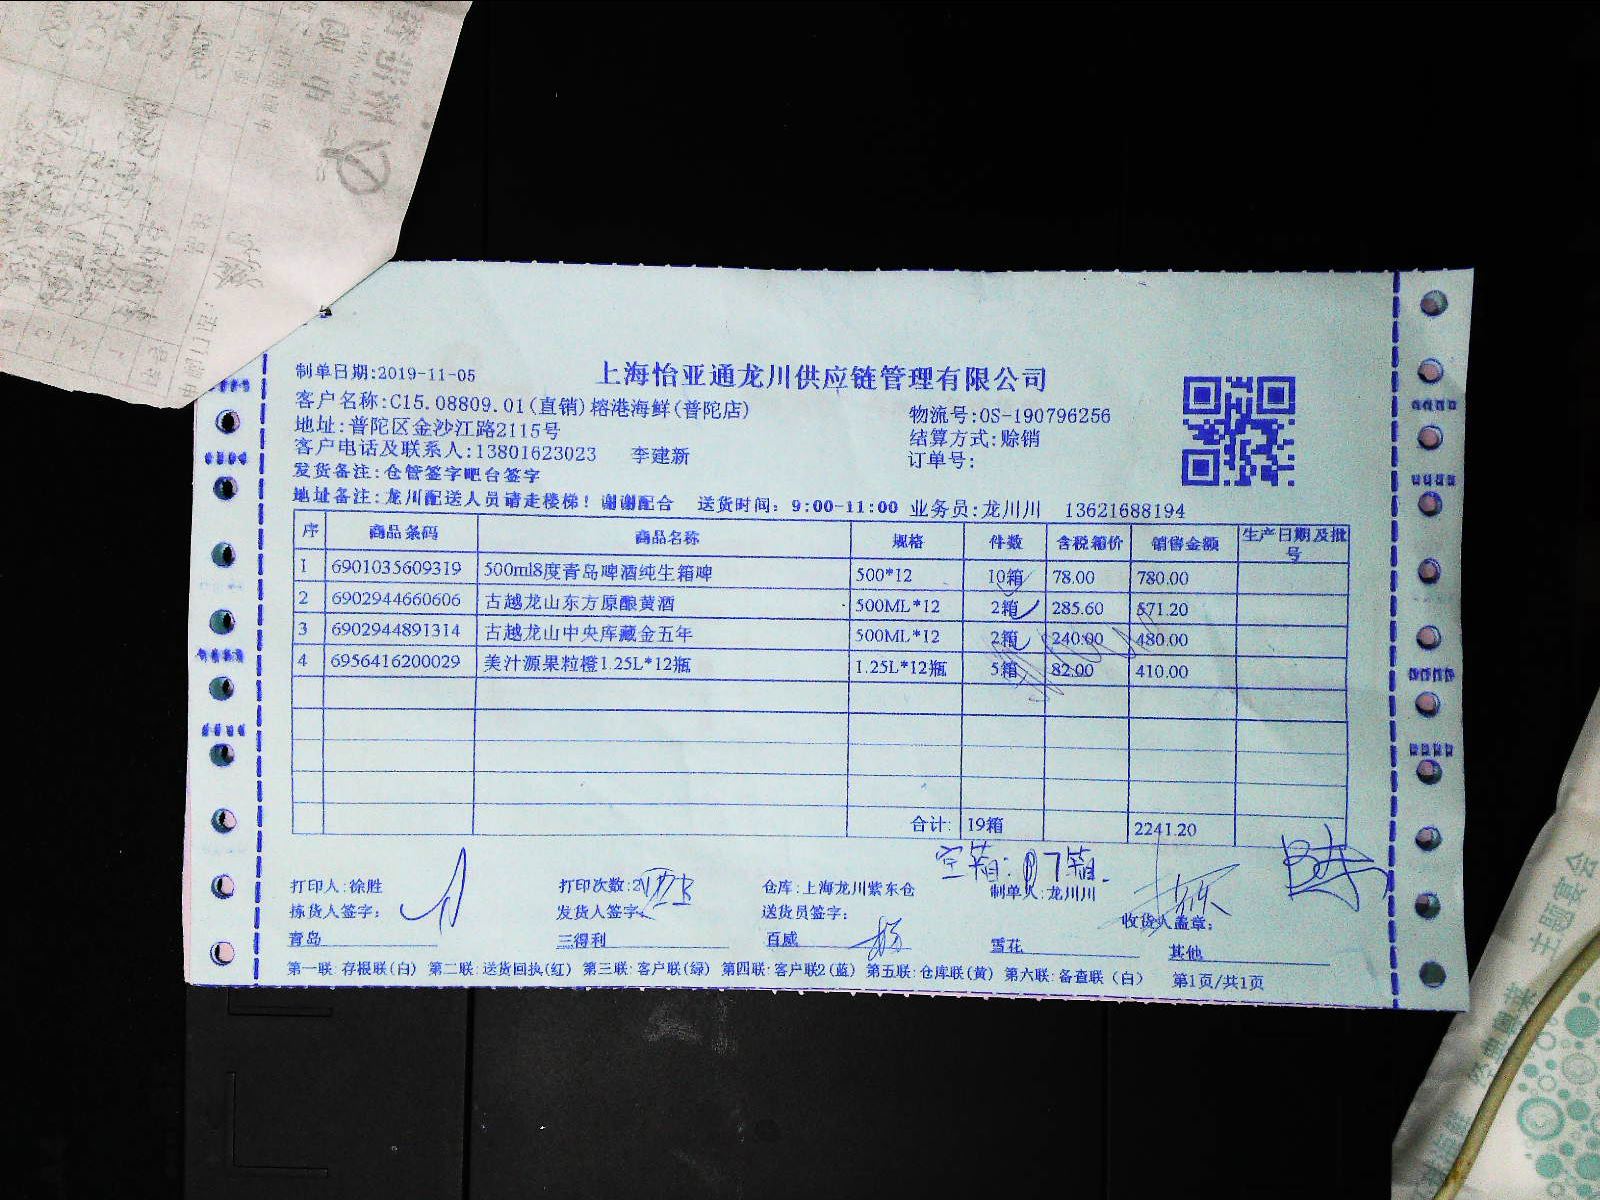 制单日期:2019-11-05
上海怡亚通龙川供应链管理有限公司
客户名称:C15.08809.01(直销)榕港海鲜(普陀店)
物流号:OS-190796256
地址:普陀区金沙江路2115号
结算方式:赊销
客户电话及联系人:13801623023 李建新
订单号:
发货备注:仓管签字吧台签字
地址备注:龙川配送人员请走楼梯！谢谢配合 送货时间:9:00-11:00 业务员:龙川川 13621688194
序 商品条码 商品名称 规格 件数 含税箱价 销售金额 生产日期及批号
1 6901035609319 500ml8度青岛啤酒纯生箱啤 500*12 10箱 78.00 780.00
2 6902944660606 古越龙山东方原酿黄酒 500ML*12 2箱 285.60 571.20
3 6902944891314 古越龙山中央库藏金五年 500ML*12 2箱 240.00 480.00
4 6956416200029 美汁源果粒橙1.25L*12瓶 1.25L*12瓶 5箱 82.00 410.00
合计: 19箱 2241.20
空箱: 7箱.
打印人:徐胜 打印次数:2 仓库:上海龙川紫东仓 制单人:龙川川
拣货人签字: 发货人签字: 送货员签字: 收货人盖章:
青岛 三得利 百威 雪花 其他
第一联:存根联(白) 第二联:送货回执(红) 第三联:客户联(绿) 第四联:客户联2(蓝) 第五联:仓库联(黄) 第六联:备查联(白) 第1页/共1页
主题宴会